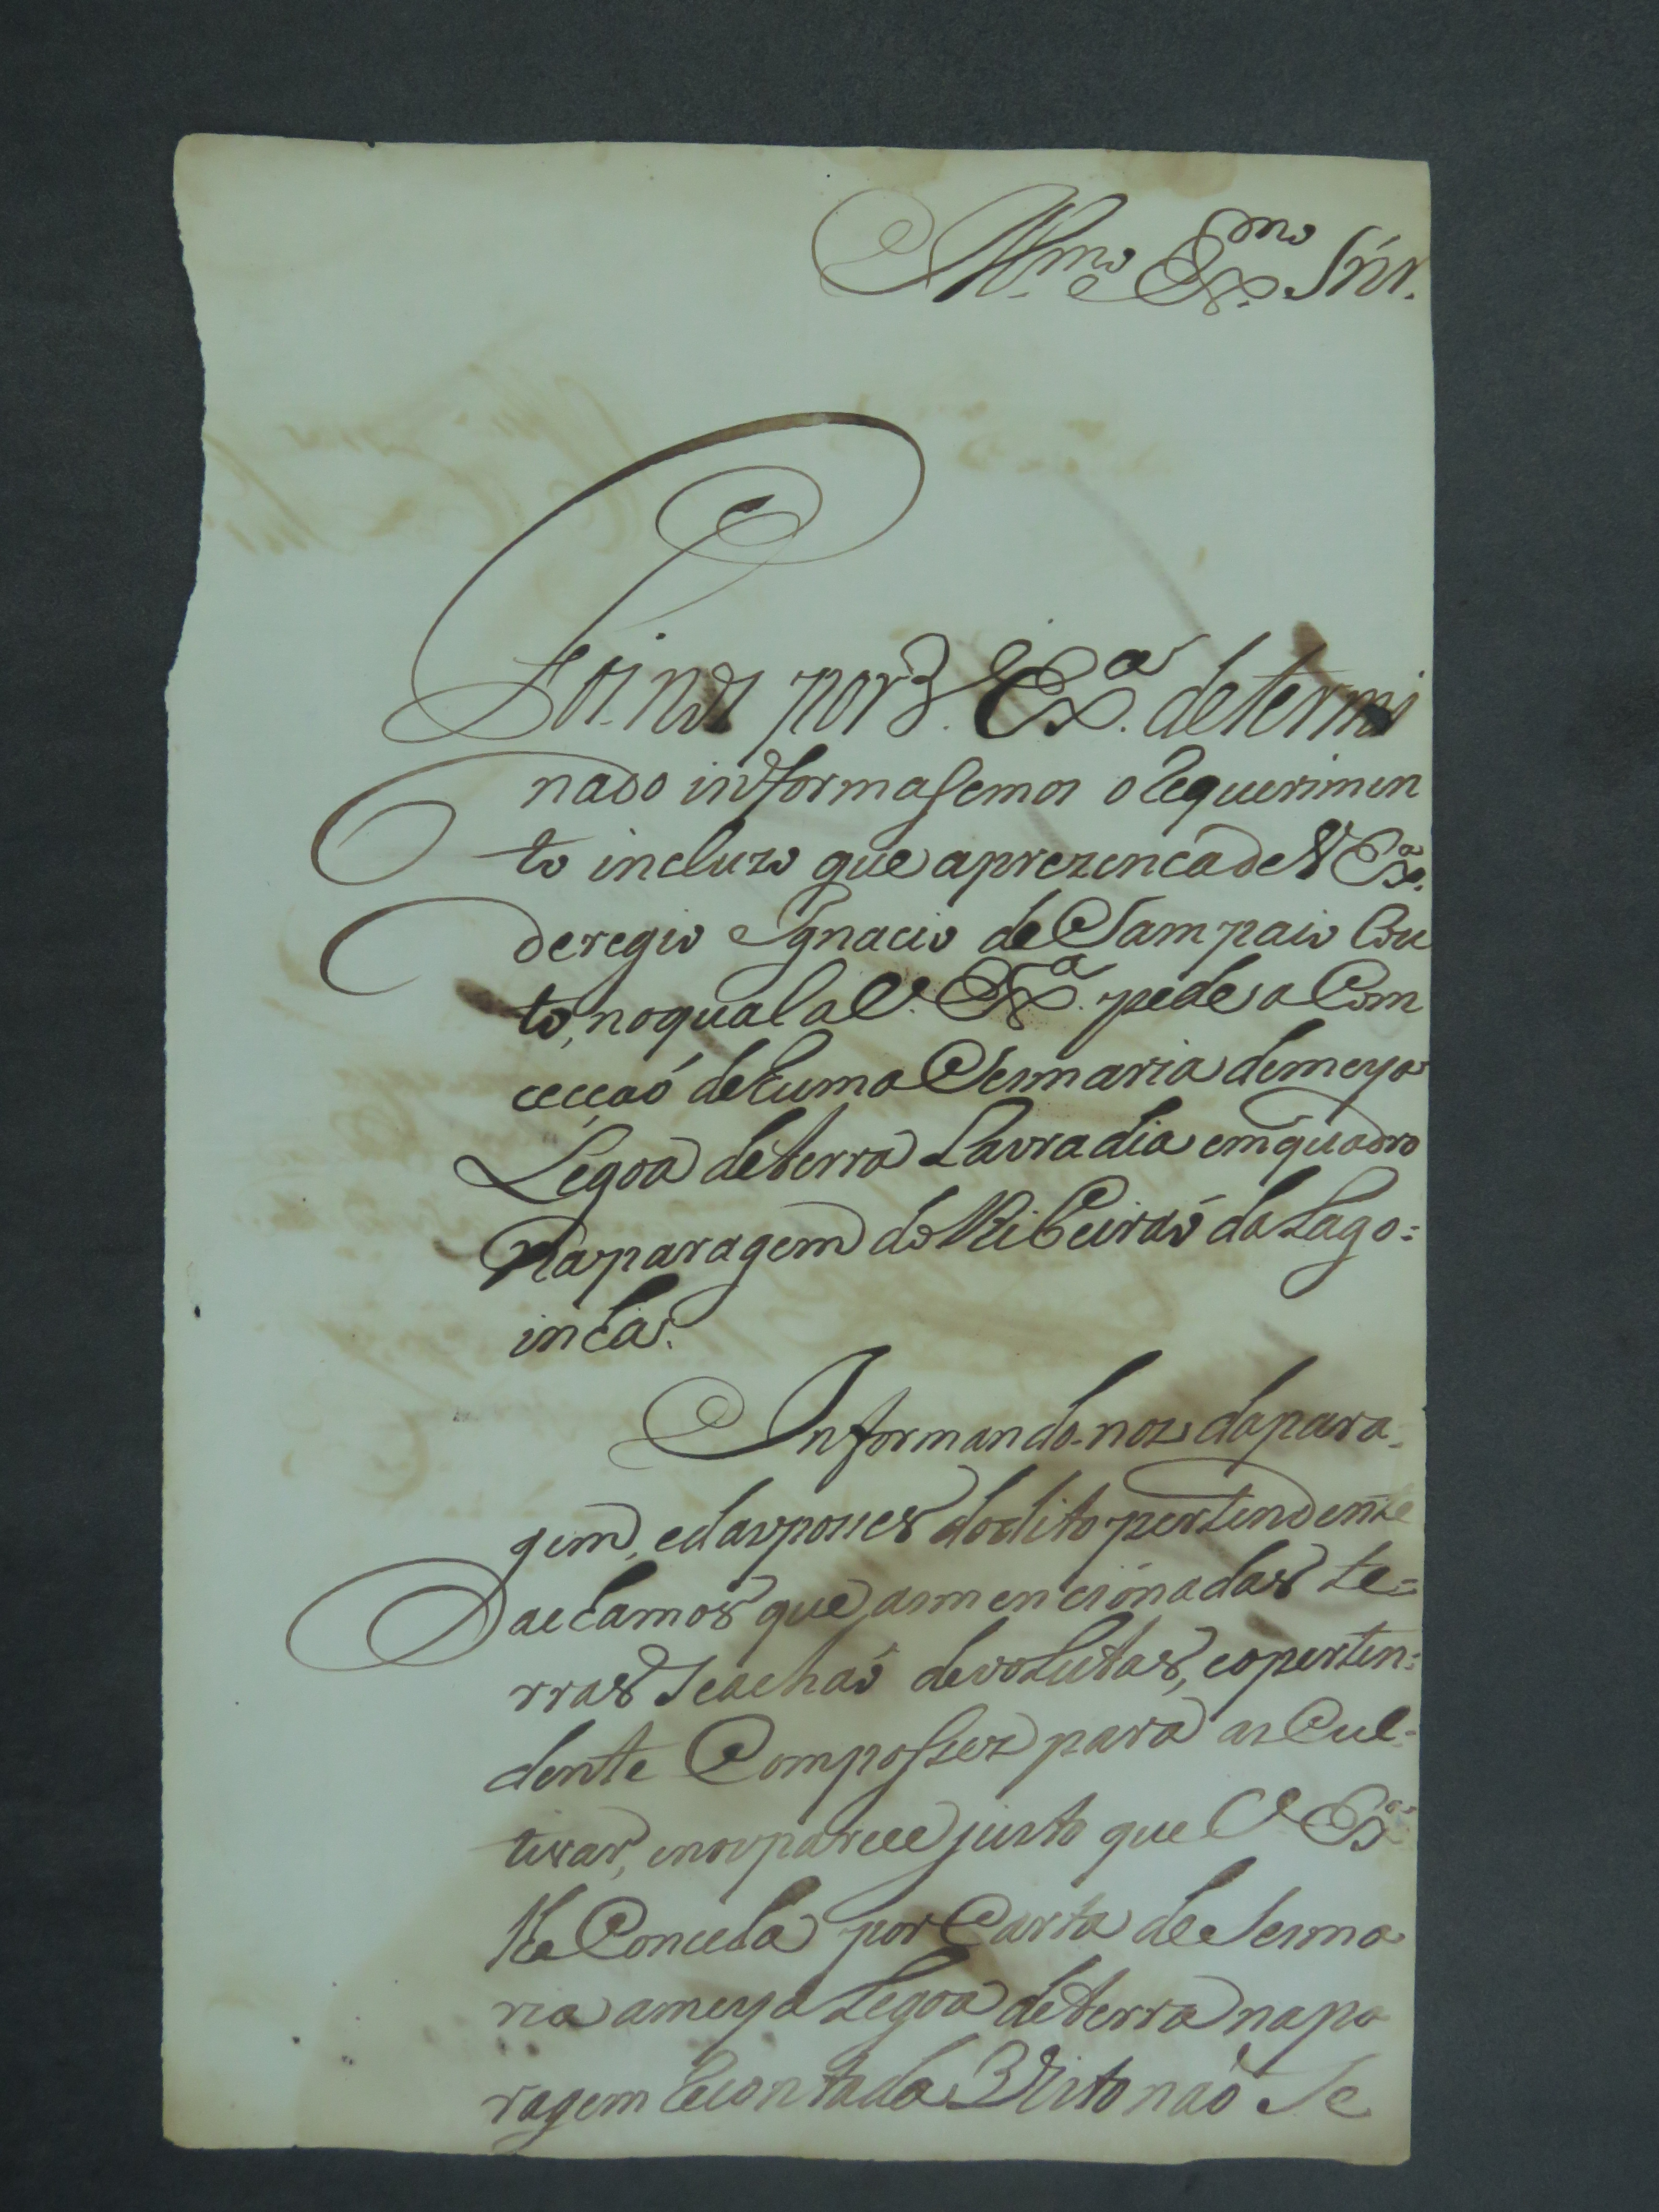 Illmo. e Exmo. Snr.
Foi-nos por V. Exa. determi
nado informasemos o requerimen
to incluzo que aprezenca de V Exa.
deregio Ignacio de Sampaio Cou
to, noqual a V. Exa. pede a Com
ceçaó dehuma Sesmaria demeya
Legoa deterra Lavradia emquadro
Naparagem do Ribeiraó da Lago=
inha.
Informando-nos dapara=
gem, edasposses dodito pertendente
achamos que asmencionadas te=
rras Seachaó devolutas, eoperten=
dente Compossez para as Cul=
tivar, enosparece justo que V Exa.
lhe Conceda por Carta de Sesma
ria ameya Legoa deterra napa
ragem recontada Visto naó Se